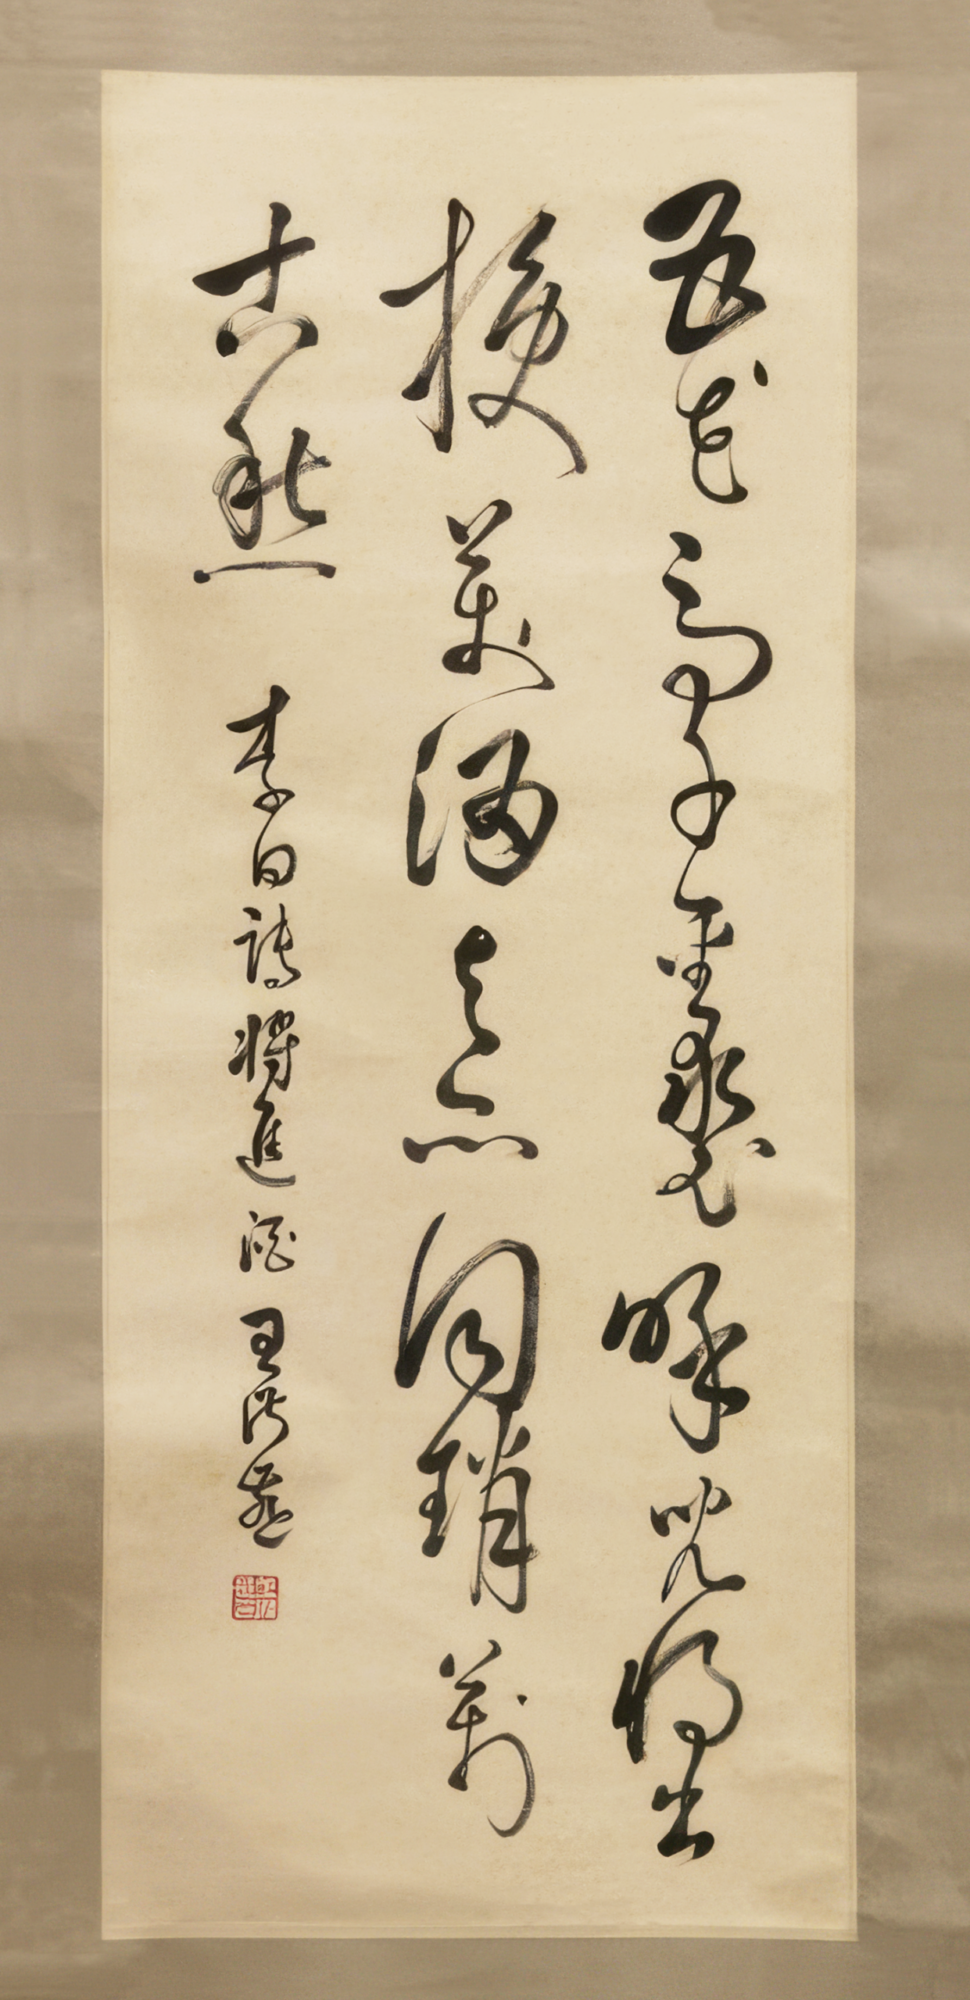 五花馬千金裘呼兒將出
換美酒與爾同銷萬
古愁 李白詩將進酒 王